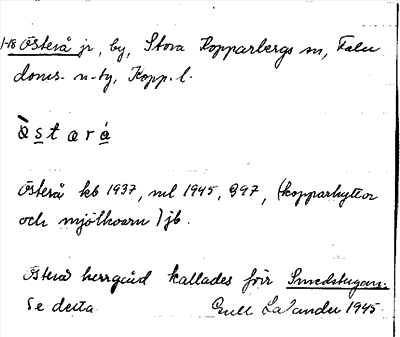 1-18 Österå jr, by, Stora Kopparbergs sn, Falu
doms. n-ty, Kopp. l.
ästarå
Österå kb 1937, ml 1945, 997, (kopparhyttor
och mjölkvarn) jb.
Österå herrgård kallades förr Smedstugan.
Se detta. Gull Lalander 1945.